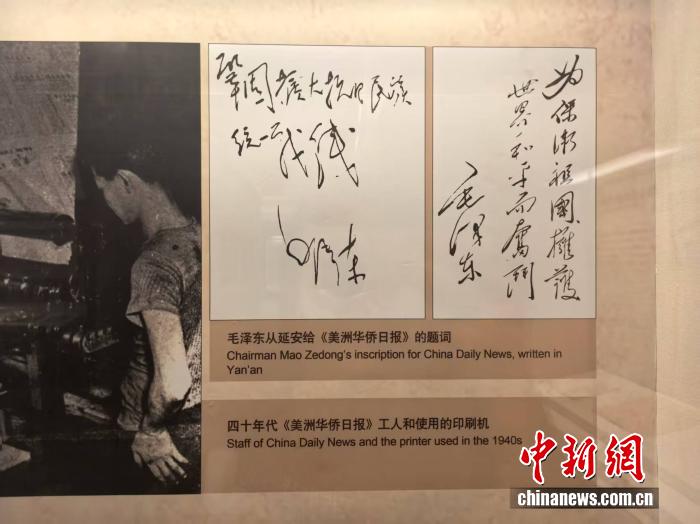 巩固扩大抗日民族
统一战线
毛泽东
为保衛祖國擁護
世界和平而奮鬥
毛澤东
毛泽东从延安给《美洲华侨日报》的题词
Chairman Mao Zedong's inscription for China Daily News, written in
Yan'an
四十年代《美洲华侨日报》工人和使用的印刷机
Staff of China Daily News and the printer used in the 1940s
中新网
www.chinanews.com.cn